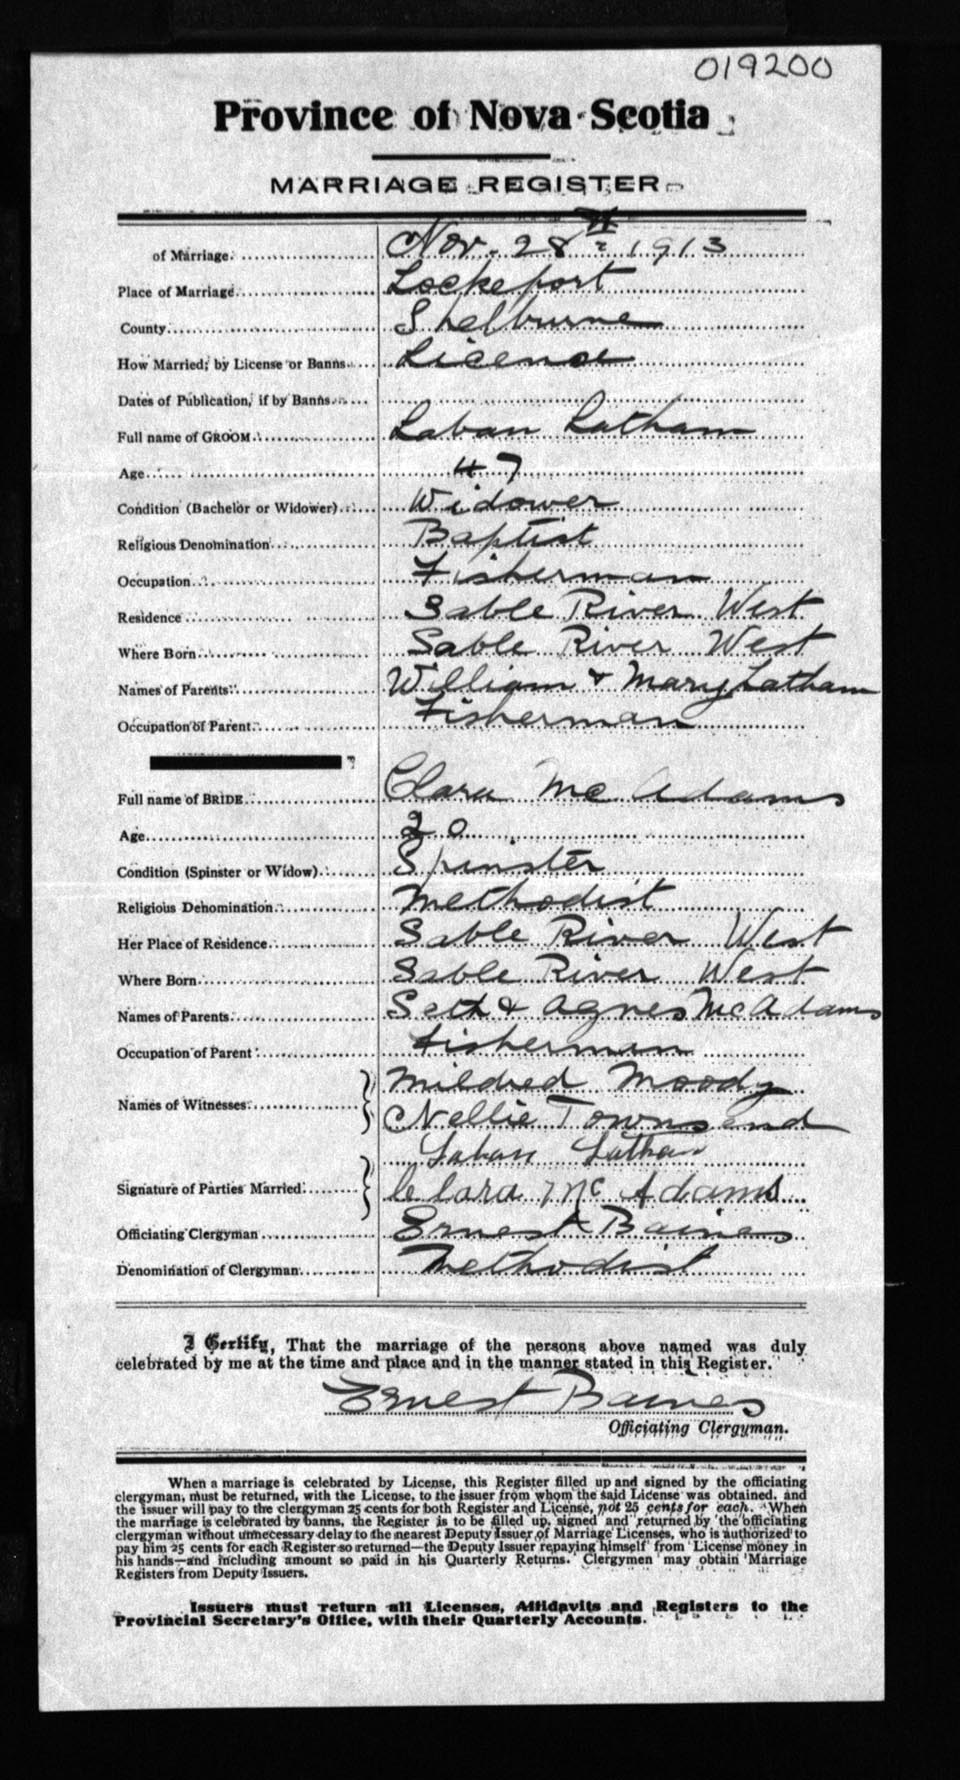 019200
Province of Nova Scotia
MARRIAGE REGISTER
of Marriage. Nov. 28th 1913
Place of Marriage Lockeport
County Shelburne
How Married; by License or Banns. License
Dates of Publication, if by Banns
Full name of GROOM Laban Latham
Age 47
Condition (Bachelor or Widower) Widower
Religious Denomination Baptist
Occupation Fisherman
Residence Sable River West
Where Born Sable River West
Names of Parents William & Mary Latham
Occupation of Parent Fisherman
Full name of BRIDE Clara Mc Adams
Age 20
Condition (Spinster or Widow) Spinster
Religious Denomination Methodist
Her Place of Residence Sable River West
Where Born Sable River West
Names of Parents Seth & Agnes McAdams
Occupation of Parent Fisherman
Mildred Moody
Names of Witnesses Nellie Townsend
Laban Latham
Signature of Parties Married Clara Mc Adams
Officiating Clergyman Ernest Baines
Denomination of Clergyman Methodist
I Certify, That the marriage of the persons above named was duly
celebrated by me at the time and place and in the manner stated in this Register.
Ernest Baines
Officiating Clergyman.
When a marriage is celebrated by License, this Register filled up and signed by the officiating
clergyman, must be returned, with the License, to the issuer from whom the said License was obtained, and
the issuer will pay to the clergyman 25 cents for both Register and License, not 25 cents for each. When
the marriage is celebrated by banns, the Register is to be filled up, signed and returned by the officiating
clergyman without unnecessary delay to the nearest Deputy Issuer of Marriage Licenses, who is authorized to
pay him 25 cents for each Register so returned—the Deputy Issuer repaying himself from License money in
his hands—and including amount so paid in his Quarterly Returns. Clergymen may obtain Marriage
Registers from Deputy Issuers.
Issuers must return all Licenses, Affidavits and Registers to the
Provincial Secretary's Office, with their Quarterly Accounts.